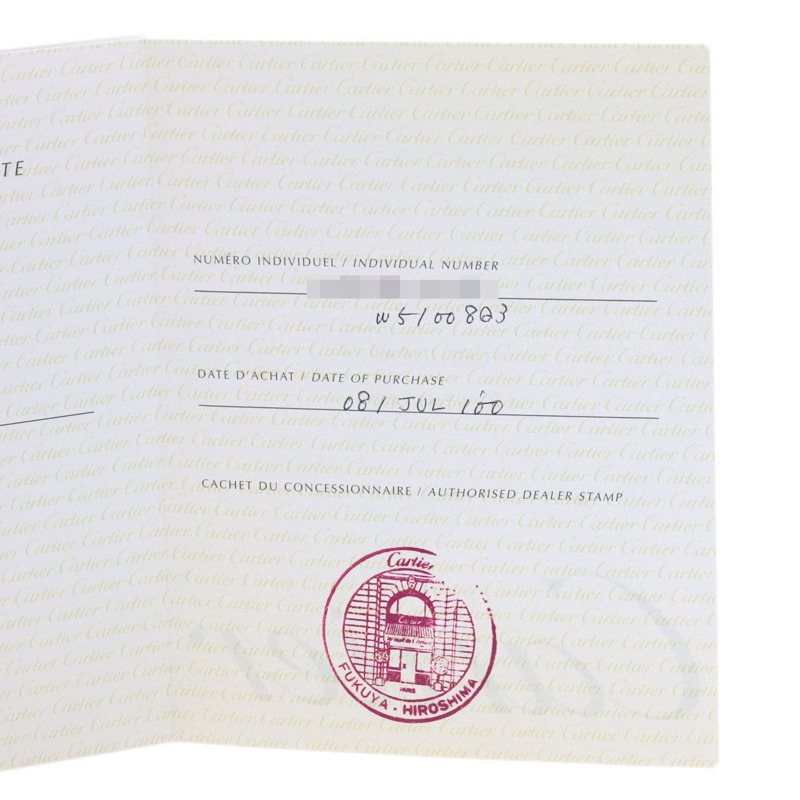 TE
NUMÉRO INDIVIDUEL / INDIVIDUAL NUMBER
W5100803
DATE D'ACHAT / DATE OF PURCHASE
08 / JUL / '00
CACHET DU CONCESSIONNAIRE / AUTHORISED DEALER STAMP
Cartier
Cartier
PARIS
FUKUYA · HIROSHIMA